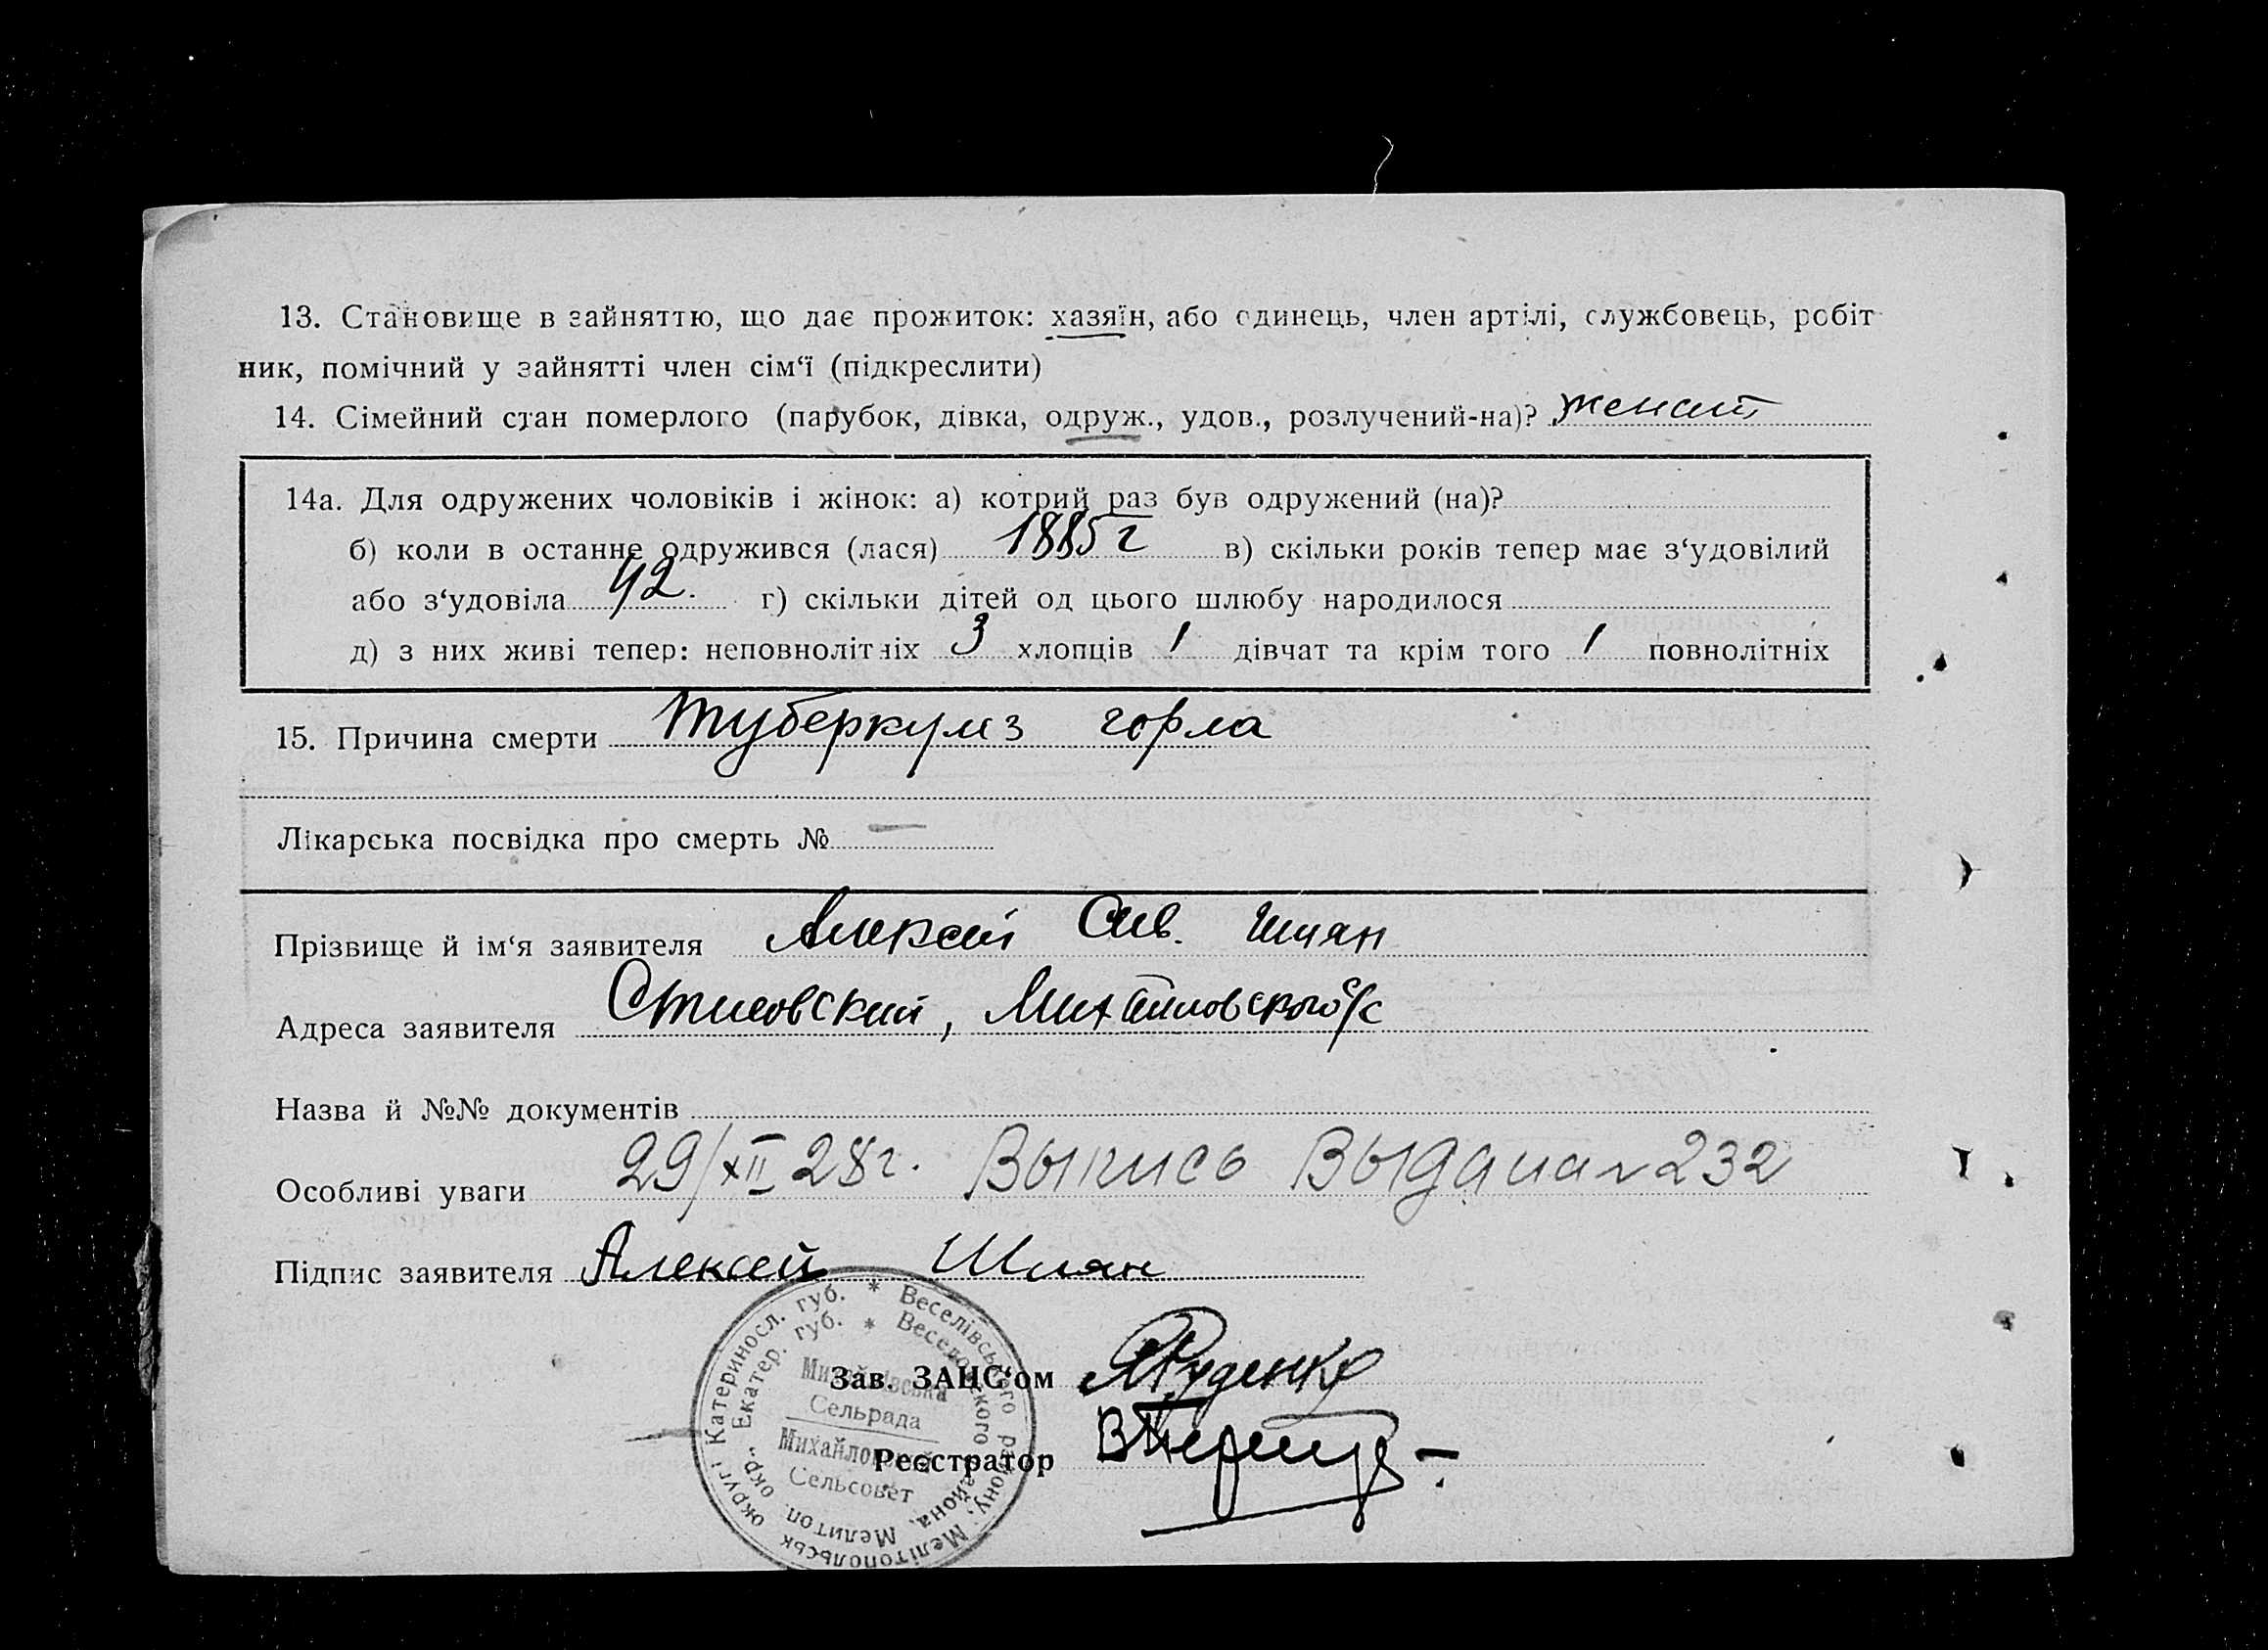 13. Становище в зайняттю, що дає прожиток: хазяїн, або одинець, член артілі, службовець, робіт
ник, помічний у зайнятті член сім‘ї (підкреслити)
14. Сімейний стан померлого (парубок, дівка, одруж., удов., розлучений-на)? женат
14а. Для одружених чоловіків і жінок: а) котрий раз був одружений (на)?
б) коли в останнє одружився (лася) 1885 г в) скільки років тепер має з‘удовілий
або з‘удовіла 42. г) скільки дітей од цього шлюбу народилося
д) з них живі тепер: неповнолітніх 3 хлопців 1 дівчат та крім того 1 повнолітніх
15. Причина смерти туберкулз горла
Лікарська посвідка про смерть № —
Прізвище й ім‘я заявителя Алексей Шиян
Адреса заявителя Михайловского с/с
Назва й №№ документів
Особливі уваги 29/XII 28г. Выпись Выдана № 232
Підпис заявителя Алексей Шиян
Катериносл. губ. * Веселівського району, Мелітопольськ округі
Екатер. губ. * Веселовского района, Мелитоп. окр.
Михайлівська
Сельрада
Михайловский
Сельсовет
Зав. ЗАЦС‘ом Руденко
Реєстратор